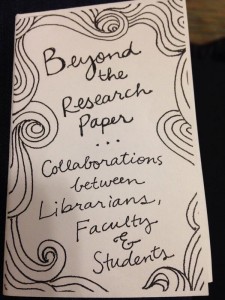 Beyond
the
Research
Paper
...
Collaborations
between
Librarians,
Faculty
&
Students